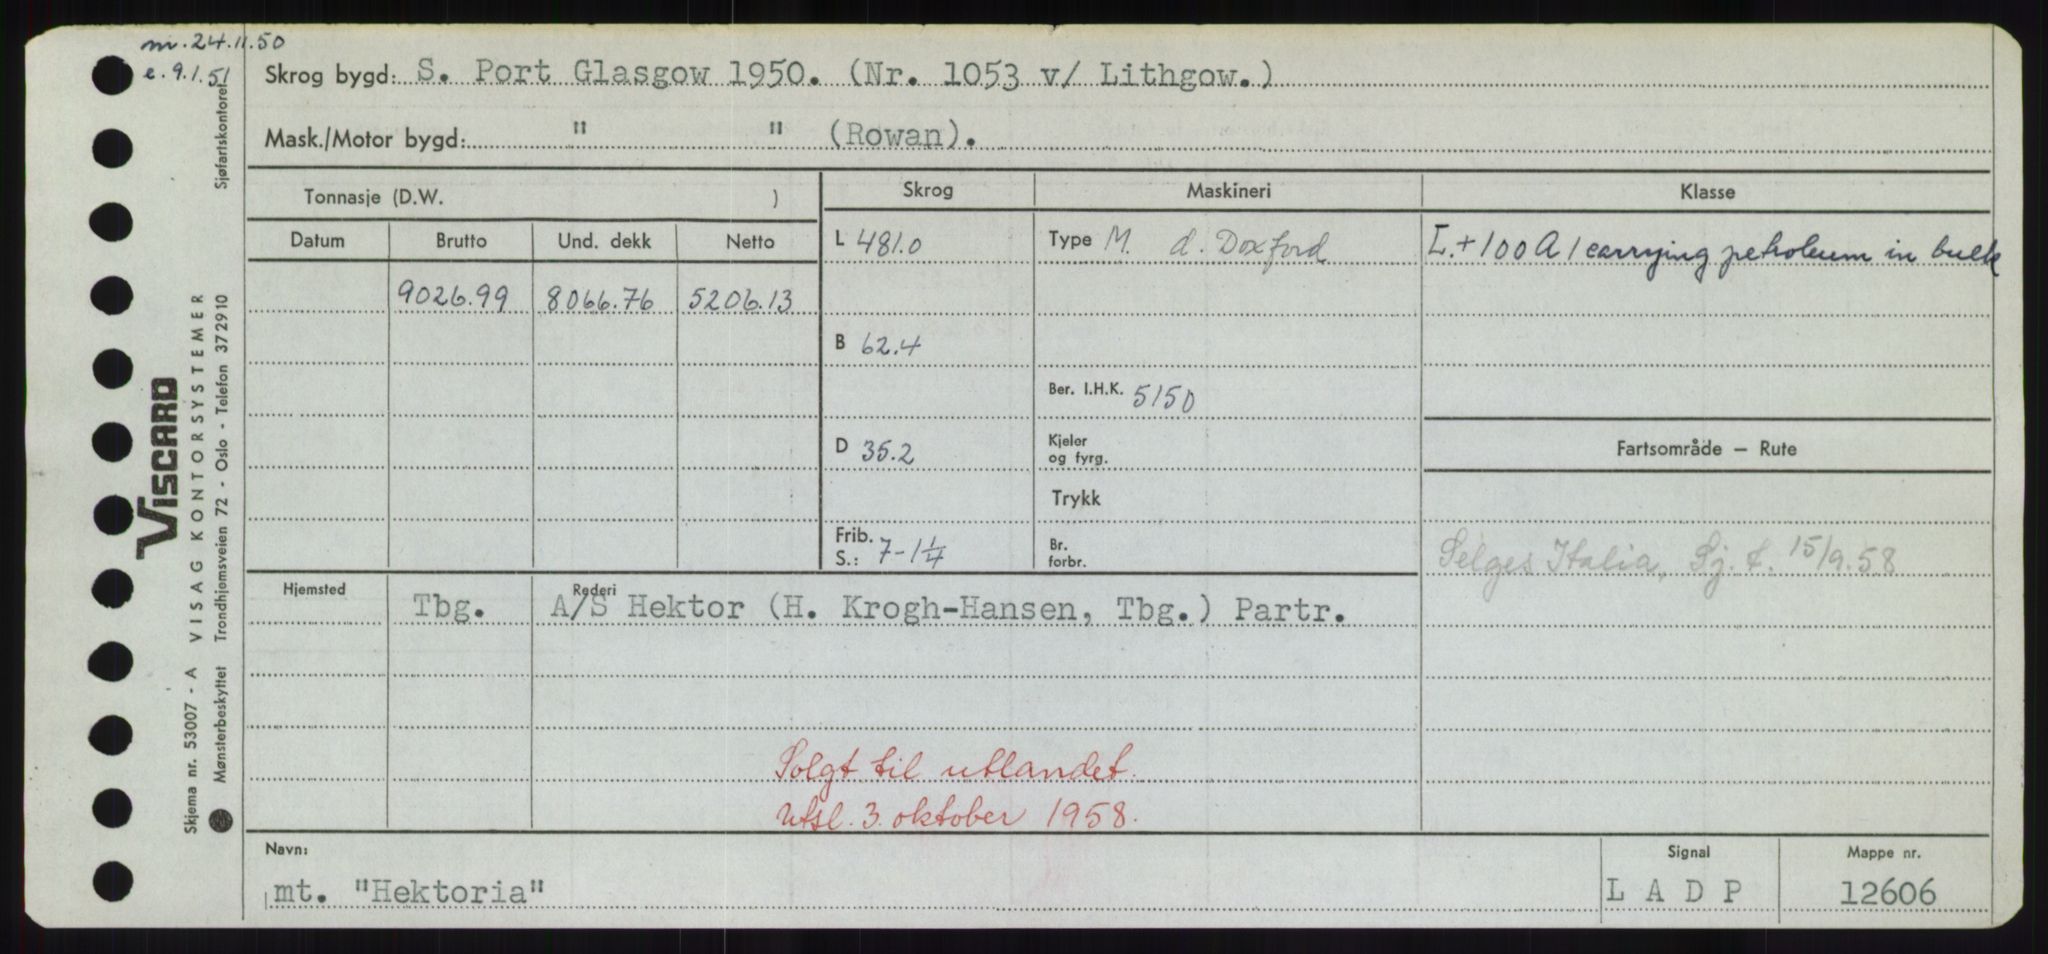 m. 24.11.50
e. 9.1.51
Skrog bygd: S. Port Glasgow 1950. (Nr. 1053 v/ Lithgow.)
Mask./Motor bygd: " " (Rowan).
Sjøfartskontoret
Tonnasje (D.W. )
Skrog
Maskineri
Klasse
Datum Brutto Und. dekk Netto
L 481.0
Type M. d. Doxford
L.+100A1 carrying petroleum in bulk
9026.99 8066.76 5206.13
B 62.4
Ber. I.H.K. 5150
D 35.2
Kjeler
og fyrg.
Fartsområde – Rute
Trykk
Frib.
S.: 7-1 1/4
Br.
forbr.
Selges Italia, Sj. t. 15/9.58
Hjemsted
Rederi
Tbg. A/S Hektor (H. Krogh-Hansen, Tbg.) Partr.
Solgt til utlandet.
Utsl. 3. oktober 1958.
Navn:
mt. "Hektoria"
Signal
L A D P
Mappe nr.
12606
VISCARD
Skjema nr. 53007 - A VISAG KONTORSYSTEMER
Mønsterbeskyttet Trondhjemsveien 72 - Oslo - Telefon 372910